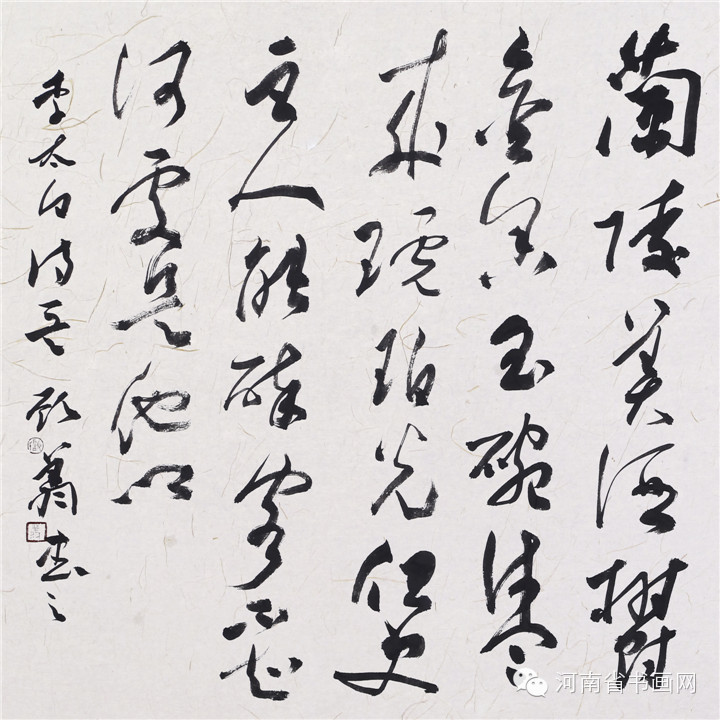 蘭陵美酒鬱
金香玉碗盛
來琥珀光但使
主人能醉客不知
何處是他鄉
李太白詩
河南省书画网